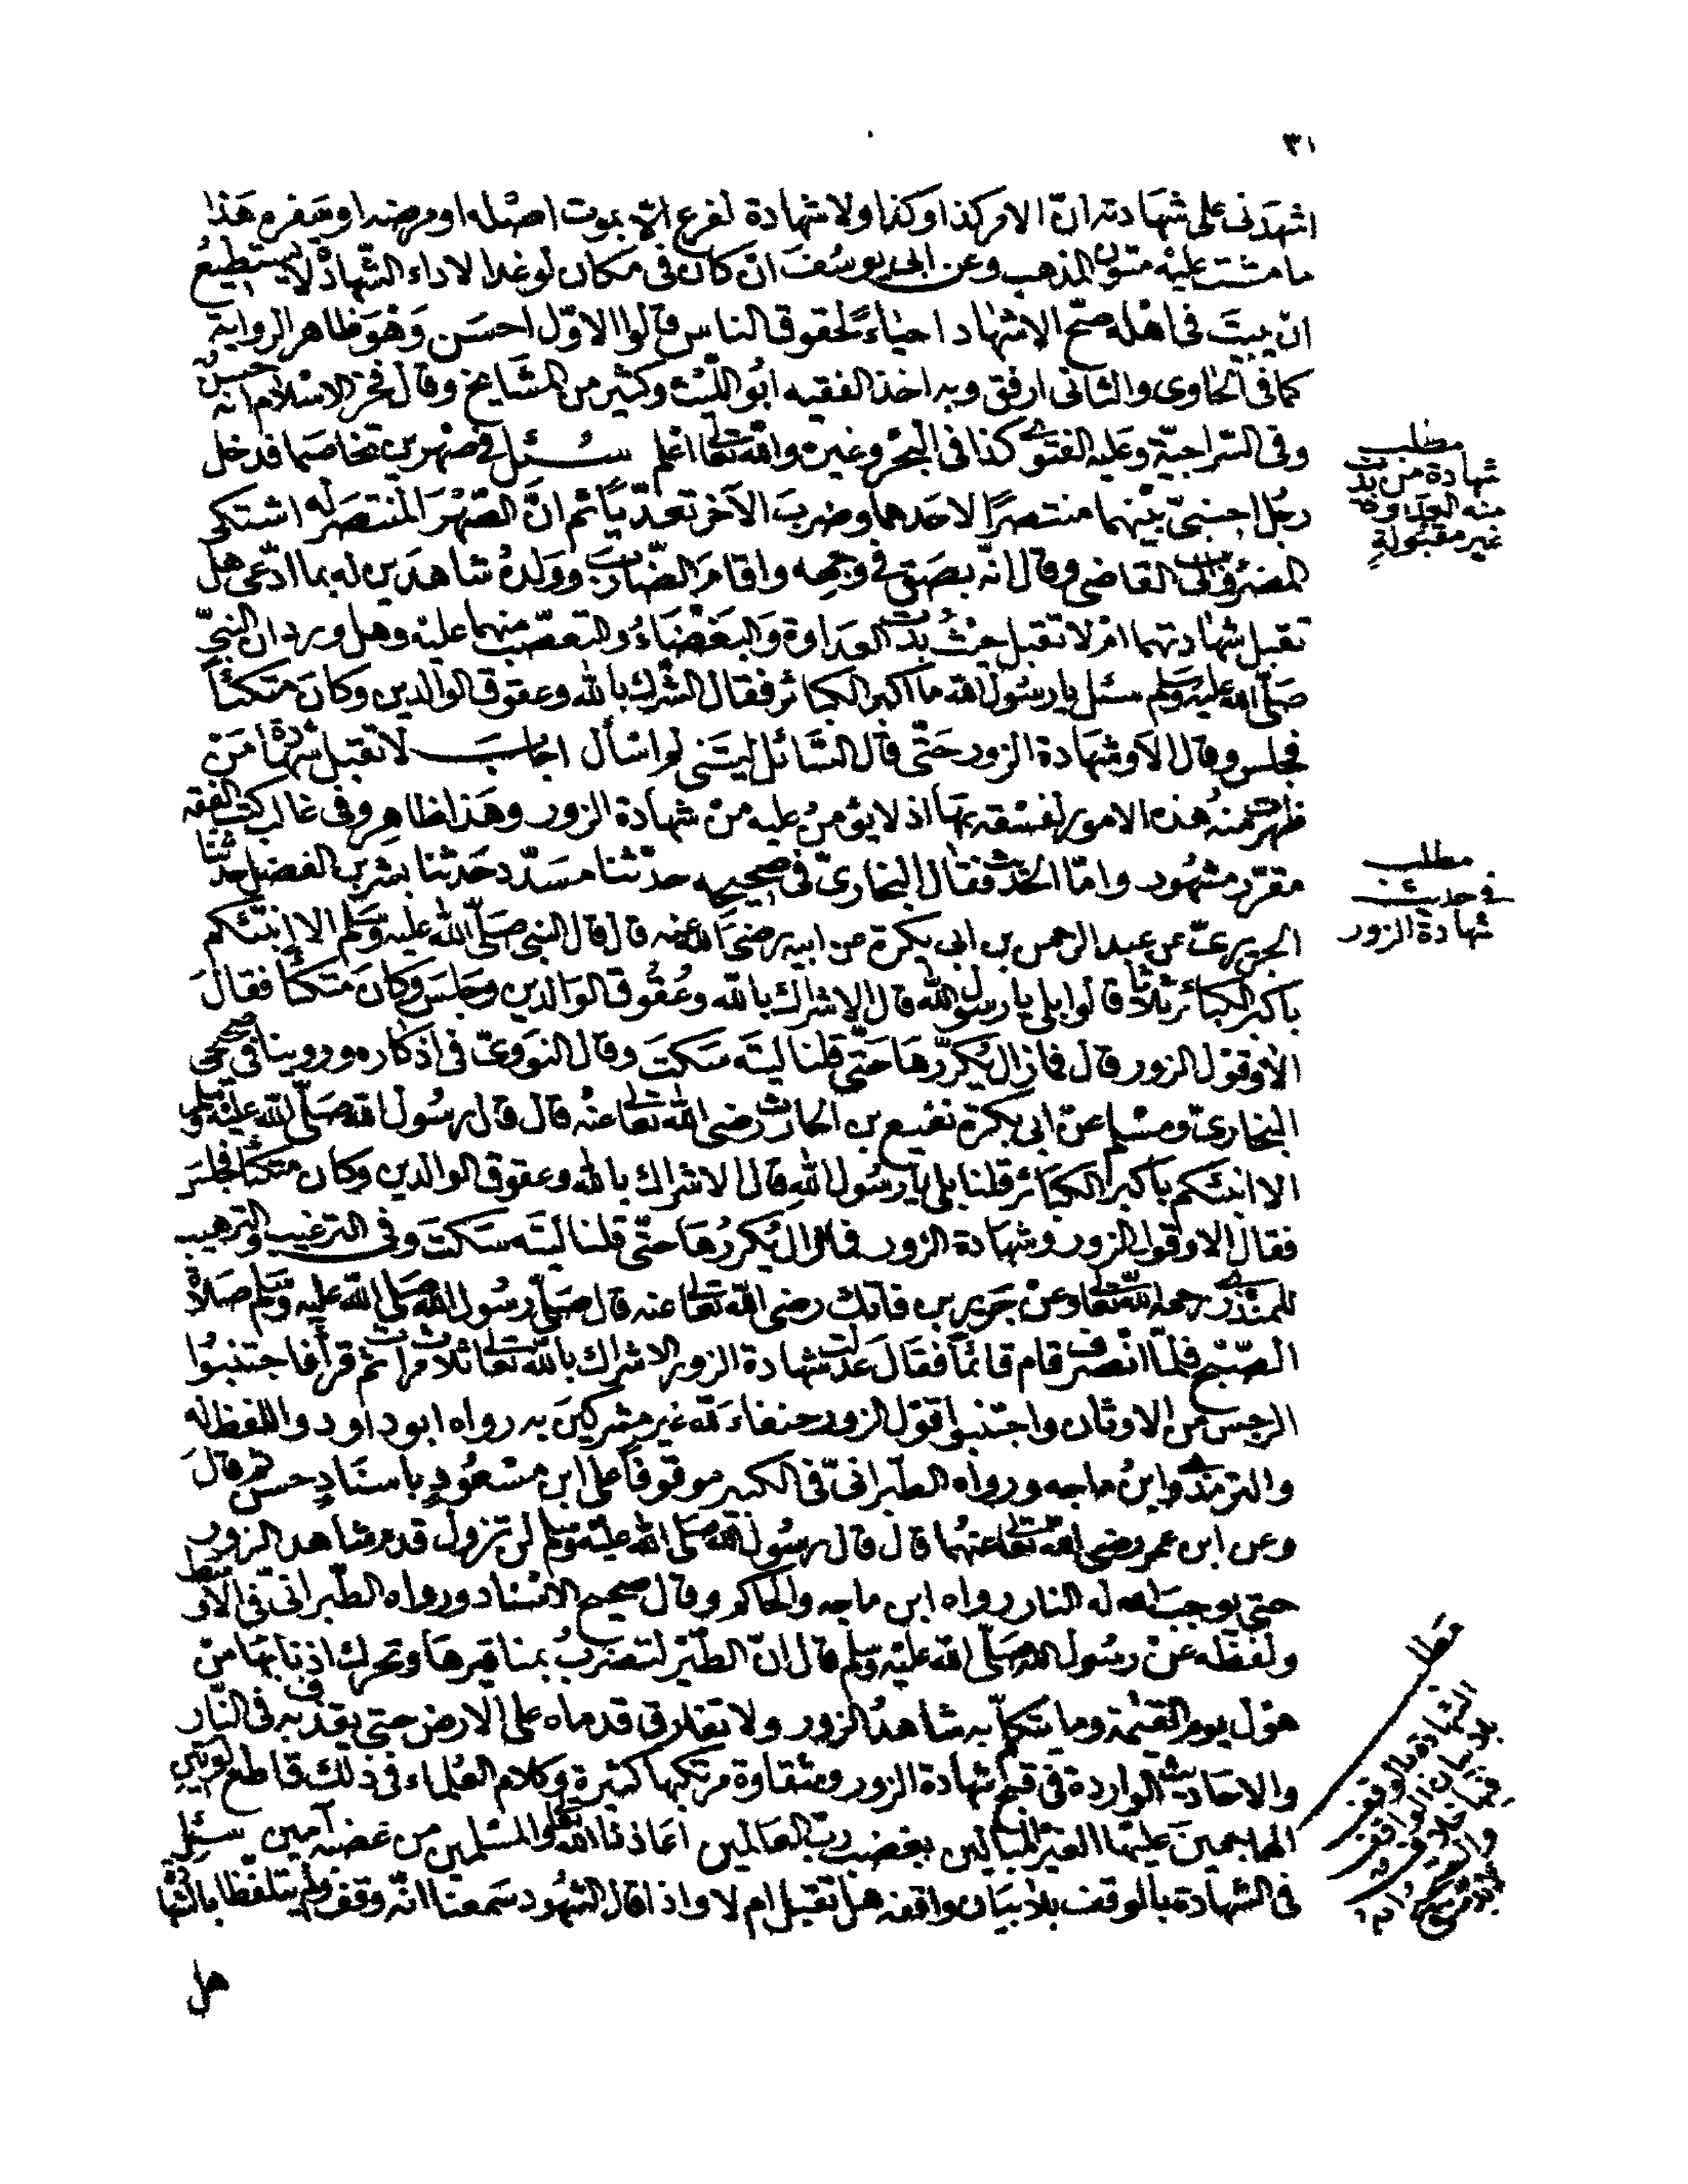 ٣١
اشهدنى على شهادته ان الامر كذا وكذا ولا شهادة لفرع الا بموت اصله او مرضه او سفره هذا
ما مشت عليه متون المذهب وعن ابى يوسف ان كان فى مكان لو غدا لاداء الشهادة لا يستطيع
ان يبيت فى اهله صح الاشهاد احياء لحقوق الناس قالوا الاول احسن وهو ظاهر الرواية
كما فى الحاوى والثانى ارفق وبه اخذ الفقيه ابو الليث وكثير من المشايخ وقال فخر الاسلام انه حسن
وفى السراجية وعليه الفتوى كذا فى البحر وغيره والله تعالى اعلم سئل فى صهرين تخاصما فدخل
رجل اجنبى بينهما منتصرا لاحدهما وضرب الآخر تعديا ثم ان الصهر المنتصر له اشتكى
المضروب الى القاضى وقال انه بصق فى وجهه واقام الضارب وولده شاهدين له بما ادعى هل
تقبل شهادتهما ام لا تقبل حيث بدت العداوة والبغضاء والتعصب منهما عليه وهل ورد ان النبى
صلى الله عليه وسلم سئل يا رسول الله ما اكبر الكبائر فقال الشرك بالله وعقوق الوالدين وكان متكئا
فجلس وقال الا وشهادة الزور حتى قال السائل ليتنى لم اسأل اجاب لا تقبل شهادة من
ظهرت منه هذه الامور لفسقه بها اذ لا يؤمن عليه من شهادة الزور وهذا ظاهر وفى غالب كتب الفقه
مقرر مشهور واما الحديث فقال البخارى فى صحيحه حدثنا مسدد حدثنا بشر بن الفضل حدثنا
الجريرى عن عبد الرحمن بن ابى بكرة عن ابيه رضى الله عنه قال قال النبى صلى الله عليه وسلم الا انبئكم
باكبر الكبائر ثلاثا قالوا بلى يا رسول الله قال الاشراك بالله وعقوق الوالدين وجلس وكان متكئا فقال
الا وقول الزور قال فما زال يكررها حتى قلنا ليته سكت وقال النووى فى اذكاره وروينا فى صحيحى
البخارى ومسلم عن ابى بكرة نفيع بن الحارث رضى الله تعالى عنه قال قال رسول الله صلى الله عليه وسلم
الا انبئكم باكبر الكبائر قلنا بلى يا رسول الله قال الاشراك بالله وعقوق الوالدين وكان متكئا فجلس
فقال الا وقول الزور وشهادة الزور فما زال يكررها حتى قلنا ليته سكت وفى الترغيب والترهيب
للمنذرى رحمه الله تعالى وعن خريم بن فاتك رضى الله تعالى عنه قال صلى رسول الله صلى الله عليه وسلم صلاة
الصبح فلما انصرف قام قائما فقال عدلت شهادة الزور الاشراك بالله تعالى ثلاث مرات ثم قرأ فاجتنبوا
الرجس من الاوثان واجتنبوا قول الزور حنفاء لله غير مشركين به رواه ابو داود واللفظ له
والترمذى وابن ماجه ورواه الطبرانى فى الكبير موقوفا على ابن مسعود باسناد حسن ثم قال
وعن ابن عمر رضى الله تعالى عنهما قال قال رسول الله صلى الله عليه وسلم لن تزول قدم شاهد الزور
حتى يوجب الله له النار رواه ابن ماجه والحاكم وقال صحيح الاسناد ورواه الطبرانى فى الاوسط
ولفظه عن رسول الله صلى الله عليه وسلم قال ان الطير لتضرب بمناقيرها وتحرك اذنابها من
هول يوم القيمة وما يتكلم به شاهد الزور ولا تفارق قدماه على الارض حتى يقذف به فى النار
والاحاديث الواردة فى قبح شهادة الزور وشقاوة مرتكبها كثيرة وكلام العلماء فى ذلك قاطع
الهاجمين عليها الغير المبالين بغضب رب العالمين اعاذنا الله تعالى والمسلمين من غضبه آمين سئل
فى الشهادة بالوقف بلا بيان واقفه هل تقبل ام لا واذا قال الشهود سمعنا انه وقف ولم يتلفظا
هل
مطلب
شهادة من بدت
منه العداوة
غير مقبولة
مطلب
فى حديث
شهادة الزور
مطلب
الشهادة بالوقف
بلا بيان الواقف